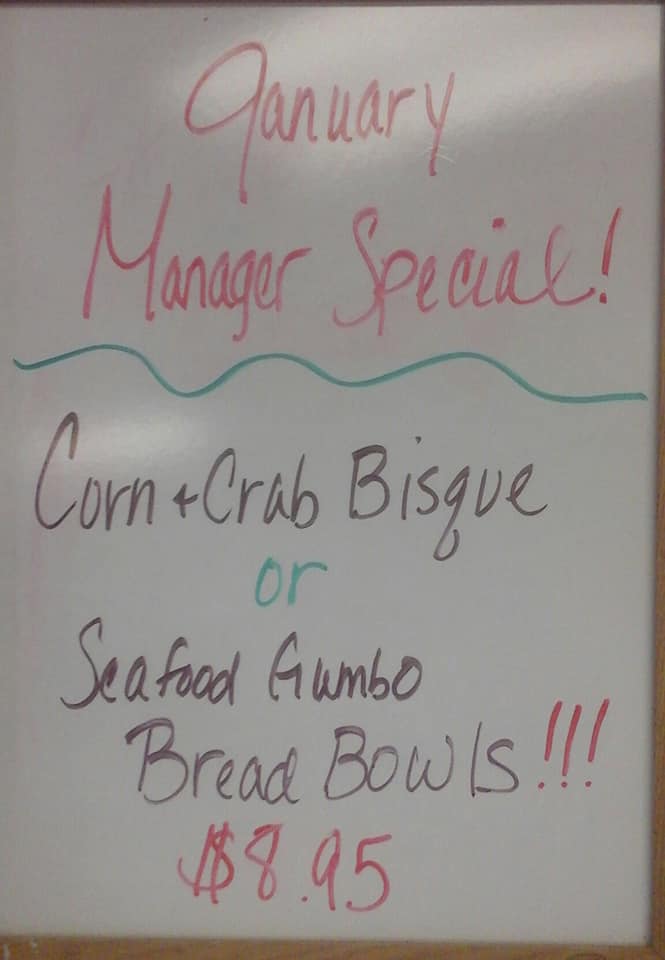 January
Manager Special!
Corn + Crab Bisque
or
Seafood Gumbo
Bread Bowls!!!
$8.95